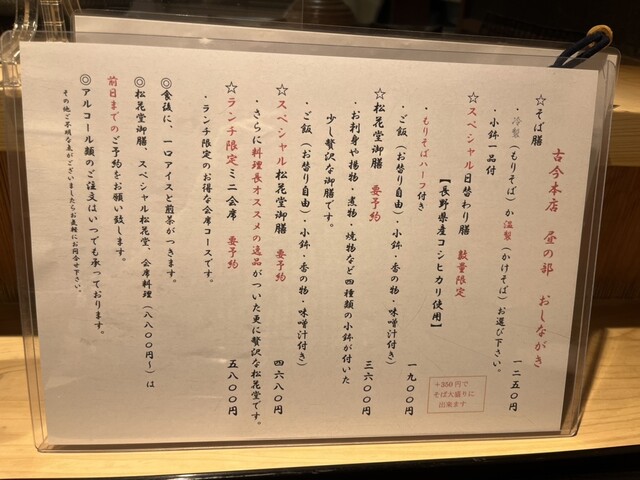 古今本店 昼の部 おしながき
☆そば膳 一二五〇円
・冷製(もりそば)か温製(かけそば)お選び下さい。
・小鉢一品付
+350円で
そば大盛りに
出来ます
☆スペシャル日替わり膳 数量限定 一九〇〇円
【長野県産コシヒカリ使用】
・もりそばハーフ付き
・ご飯(お替り自由)・小鉢・香の物・味噌汁付き)
☆松花堂御膳 要予約 三六〇〇円
・お刺身や揚物・煮物・焼物など四種類の小鉢が付いた
少し贅沢な御膳です。
・ご飯(お替り自由)・小鉢・香の物・味噌汁付き)
☆スペシャル松花堂御膳 要予約 四六八〇円
・さらに料理長オススメの逸品がついた更に贅沢な松花堂です。
☆ランチ限定ミニ会席 要予約 五八〇〇円
・ランチ限定のお得な会席コースです。
◎食後に、一口アイスと煎茶がつきます。
◎松花堂御膳、スペシャル松花堂、会席料理(八八〇〇円～)は
前日までのご予約をお願い致します。
◎アルコール類のご注文はいつでも承っております。
その他ご不明な点がございましたらお気軽にお問合せ下さい。